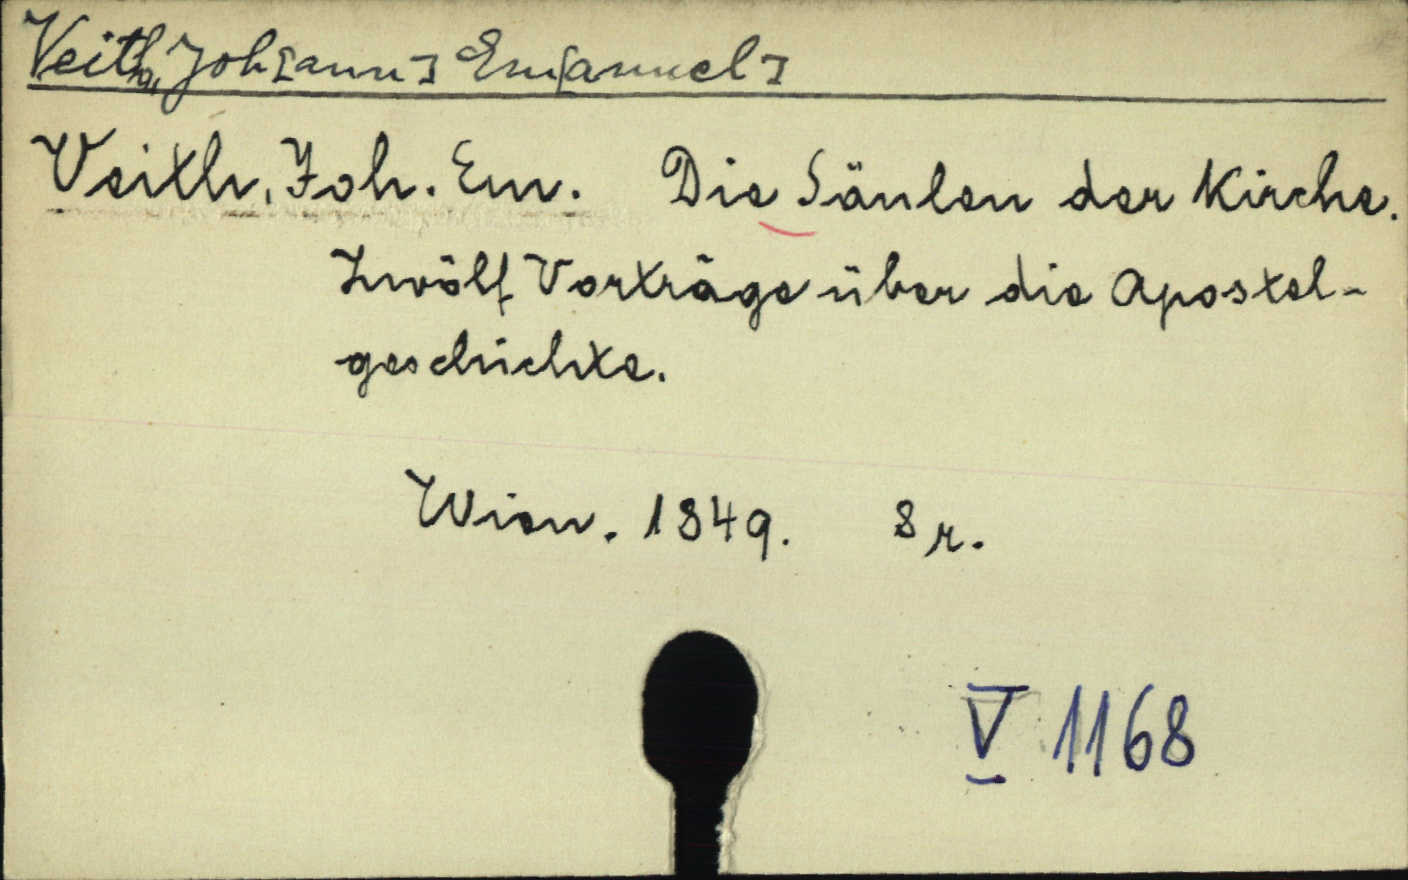 Veith, Joh[ann] Em[anuel]
Veith, Joh. Em. Die Säulen der Kirche.
Zwölf Vorträge über die Apostel-
geschichte.
Wien. 1849. 8 r.
V 1168